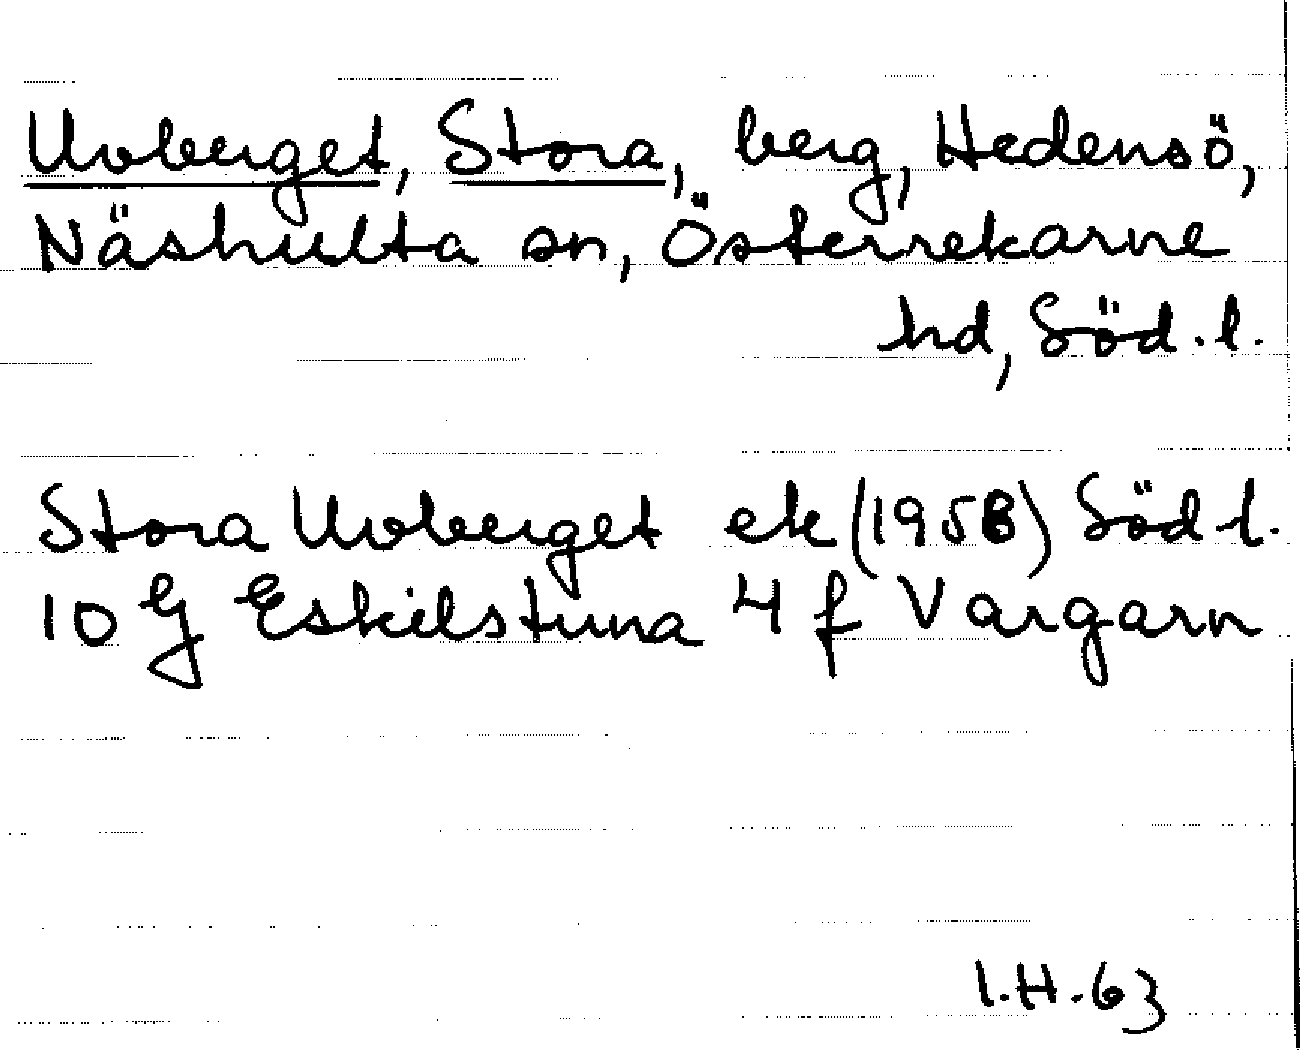 Uvberget, Stora, berg, Hedensö,
Näshulta sn, Österrekarne
hd, Söd.l.
Stora Uvberget ek (1958) Söd l.
10 G Eskilstuna 4 f Vargarn
I.H.63